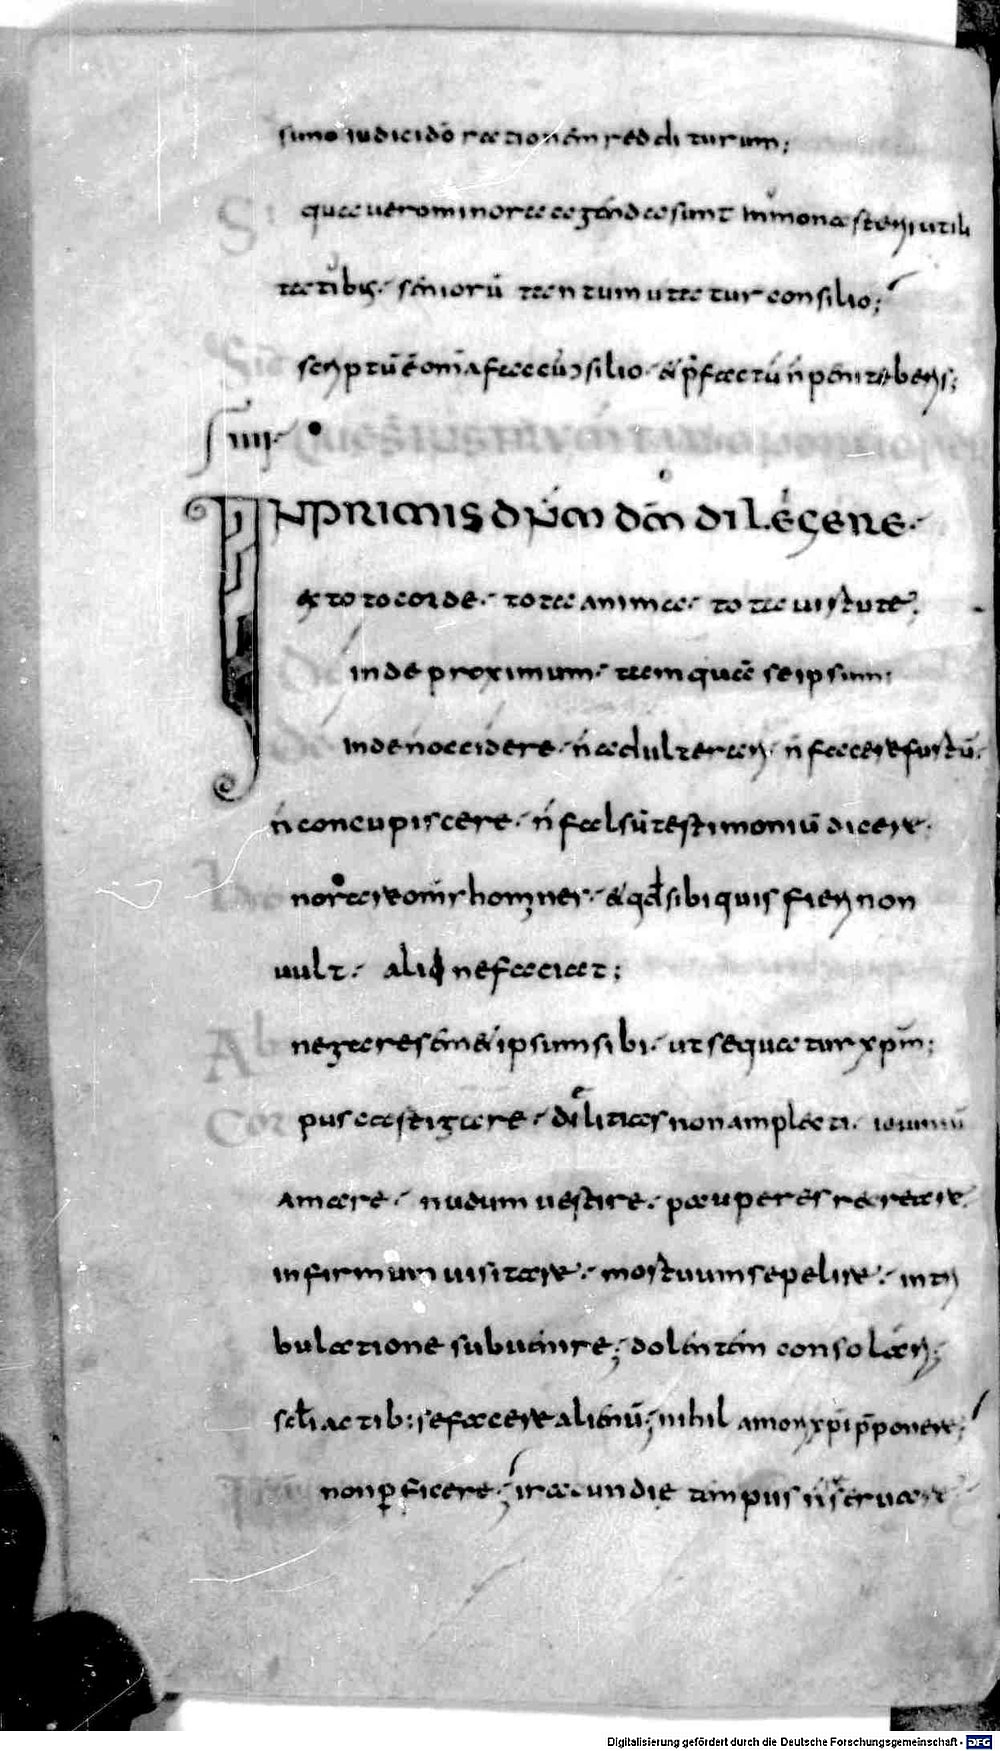 simo iudici dō rationem redditurum;
Si quae uero minora agenda sunt in monasterii utili
tatibus. seniorū tantum utatur consilio;
scriptū ē omīa fac cū consilio. et p̄ factū ñ penitebens;
IIII.
Quae s̄ instrumenta bonorum
IN PRIMIS DN̄M DM̄ DILEGERE.
ex toto corde. tota anima. tota uirtute;
Deinde proximum. tamquā seipsum;
Deinde ñ occidere. ñ adulterari. ñ facere furtū.
ñ concupiscere. ñ falsū testimoniū dicere.
Honorare om̄s homines. et qd̄ sibi quis fieri non
uult. aliō ne faciat;
Abnegare semetipsum sibi. ut sequatur xpm̄;
Corpus castigare. delitias non amplecti. ieiuniū
amare. nudum uestire. pauperes recreare.
infirmum uisitare. mortuum sepelire. in tri
bulatione subuenire; dolentem consolari;
scl̄i actib: se facere alienū; nihil amori xp̄i p̄ponere;
Iram non ꝑficere; iracundie tempus ñ seruare
Digitalisierung gefördert durch die Deutsche Forschungsgemeinschaft - DFG